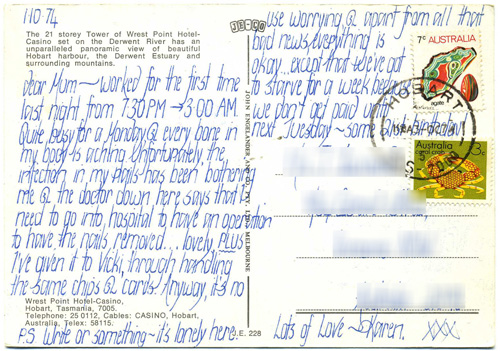 1 10 74
The 21 storey Tower of Wrest Point Hotel-
Casino set on the Derwent River has an
unparalleled panoramic view of beautiful
Hobart harbour, the Derwent Estuary and
surrounding mountains.
Dear Mum - worked for the first time
last night from 7.30 PM → 3.00 AM.
Quite busy for a Monday @ every bone in
my body is aching. Unfortunately, the
infection in my nails has been bothering
me @ the doctor down here says that I
need to go into hospital to have an operation
to have the nails removed... lovely. PLUS
I've given it to Vicki, through handling
the same chips @ cards. Anyway, it's no
Wrest Point Hotel-Casino,
Hobart, Tasmania, 7005.
Telephone: 25 0112, Cables: CASINO, Hobart,
Australia, Telex: 58115.
P.S Write or something - it's lonely here.
JE-CO
JOHN
PTY. LTD. MELBOURNE
E. 228
use worrying @ apart from all that
bad news, everything is
okay... except that we've got
to starve for a week before
we don't get paid
next Tuesday ~ some birthday!
Lots of Love ~ Karen. xxx
7c AUSTRALIA
agate
HOBART
Australia 3c
coral crab